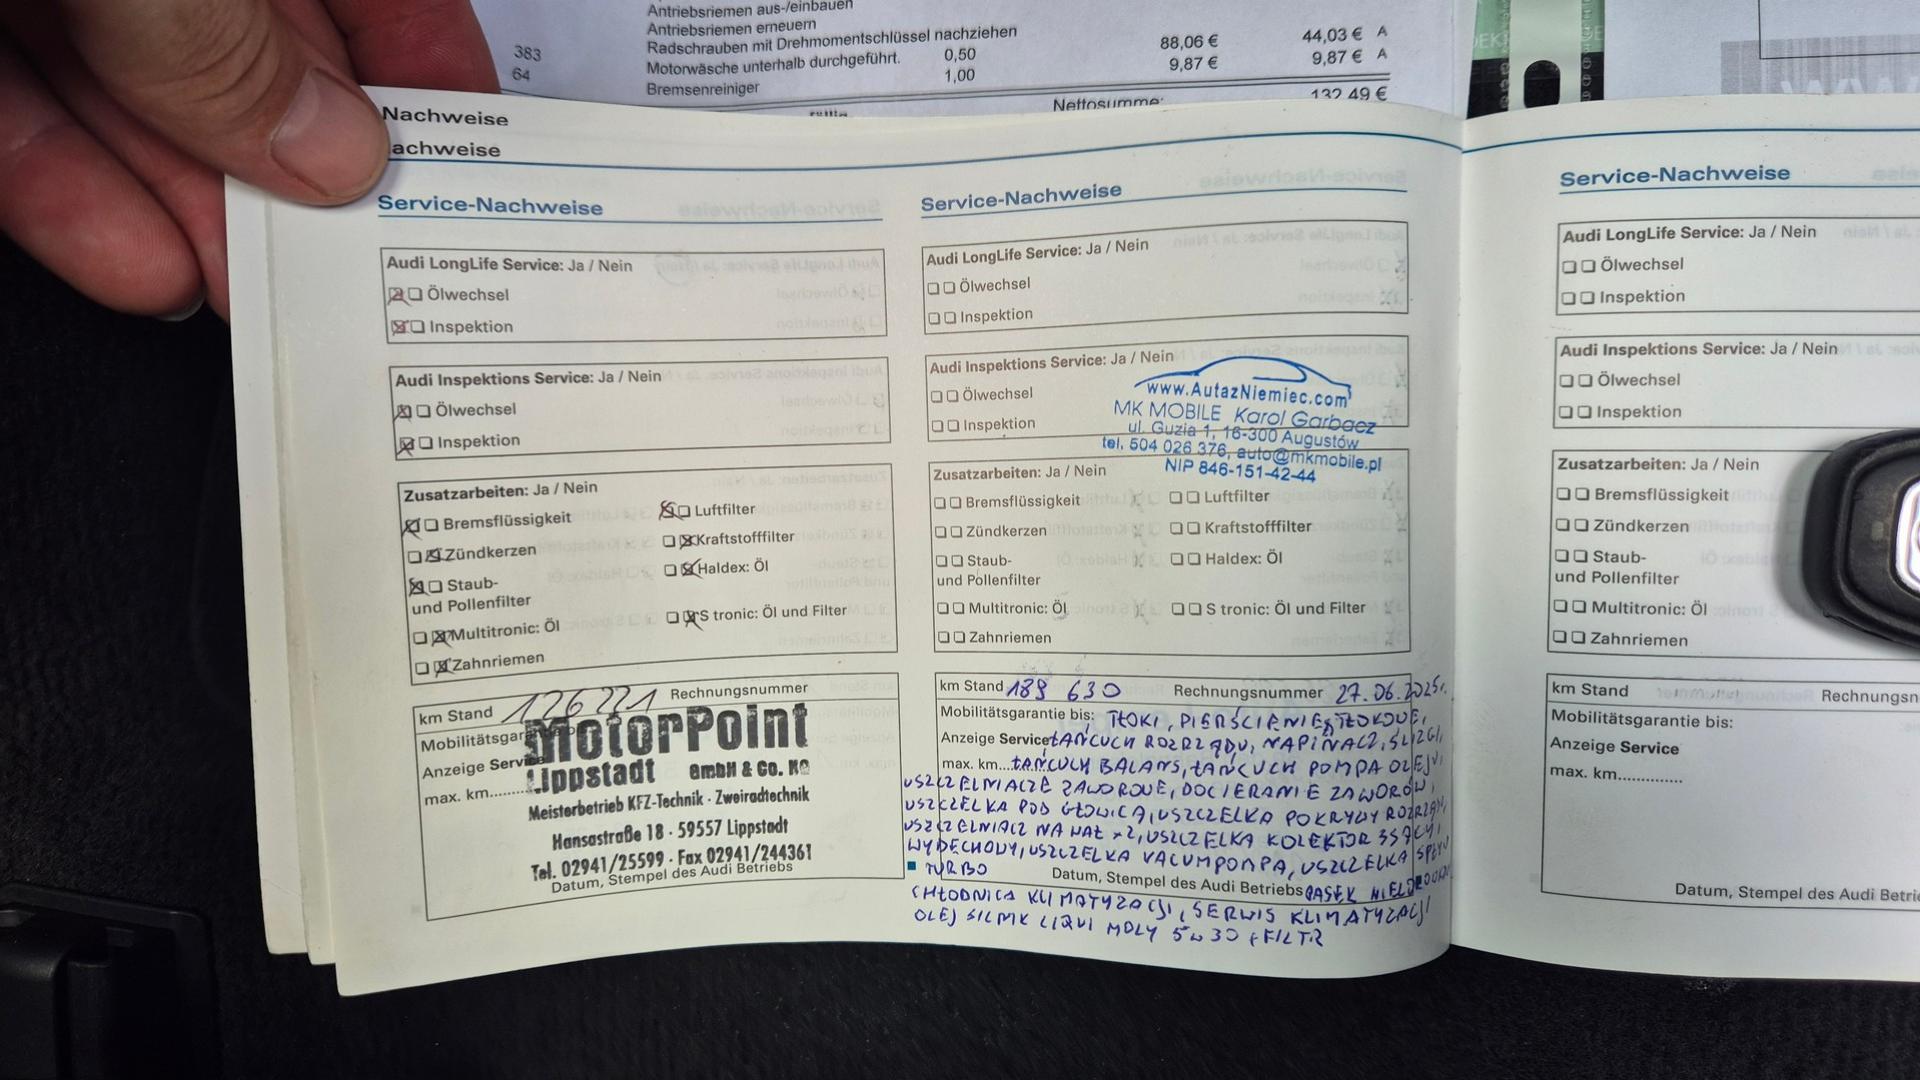 Antriebsriemen aus-/einbauen
Antriebsriemen erneuern
383 Radschrauben mit Drehmomentschlüssel nachziehen 0,50 88,06 € 44,03 € A
64 Motorwäsche unterhalb durchgeführt. 1,00 9,87 € 9,87 € A
Bremsenreiniger
Nettosumme: 132,49 €
Nachweise
achweise
Service-Nachweise
Audi LongLife Service: Ja / Nein
Ölwechsel
Inspektion
Audi Inspektions Service: Ja / Nein
Ölwechsel
Inspektion
Zusatzarbeiten: Ja / Nein
Bremsflüssigkeit Luftfilter
Zündkerzen Kraftstofffilter
Staub- Haldex: Öl
und Pollenfilter
Multitronic: Öl S tronic: Öl und Filter
Zahnriemen
km Stand 126221 Rechnungsnummer
Mobilitätsgarantie bis
Anzeige Service
max. km.........
MotorPoint
Lippstadt GmbH & Co. KG
Meisterbetrieb KFZ-Technik · Zweiradtechnik
Hansastraße 18 · 59557 Lippstadt
Tel. 02941/25599 · Fax 02941/244361
Datum, Stempel des Audi Betriebs
Service-Nachweise
Audi LongLife Service: Ja / Nein
Ölwechsel
Inspektion
Audi Inspektions Service: Ja / Nein
Ölwechsel
Inspektion
www.AutazNiemiec.com
MK MOBILE Karol Garbacz
ul. Guzia 1, 16-300 Augustów
tel. 504 026 376, auto@mkmobile.pl
NIP 846-151-42-44
Zusatzarbeiten: Ja / Nein
Bremsflüssigkeit Luftfilter
Zündkerzen Kraftstofffilter
Staub- Haldex: Öl
und Pollenfilter
Multitronic: Öl S tronic: Öl und Filter
Zahnriemen
km Stand 189 630 Rechnungsnummer 27.06.2025r.
Mobilitätsgarantie bis: TŁOKI, PIERŚCIENIE TŁOKOWE,
Anzeige Service ŁAŃCUCH ROZRZĄDU, NAPINACZ, ŚLIZGI,
max. km... ŁAŃCUCH BALANS, ŁAŃCUCH POMPA OLEJU,
USZCZELNIACZE ZAWOROWE, DOCIERANIE ZAWORÓW,
USZCZELKA POD GŁOWICĄ, USZCZELKA POKRYWY ROZRZĄDU,
USZCZELNIACZ NA WAŁ x2, USZCZELKA KOLEKTOR SSĄCY,
WYDECHOWY, USZCZELKA VACUMPOMPA, USZCZELKA SPŁYW
TURBO
Datum, Stempel des Audi Betriebs PASEK WIELOROWK
CHŁODNICA KLIMATYZACJI, SERWIS KLIMATYZACJI
OLEJ SILNIK LIQUI MOLY 5W30 + FILTR
Service-Nachweise
Audi LongLife Service: Ja / Nein
Ölwechsel
Inspektion
Audi Inspektions Service: Ja / Nein
Ölwechsel
Inspektion
Zusatzarbeiten: Ja / Nein
Bremsflüssigkeit
Zündkerzen
Staub-
und Pollenfilter
Multitronic: Öl
Zahnriemen
km Stand Rechnungsn
Mobilitätsgarantie bis:
Anzeige Service
max. km..............
Datum, Stempel des Audi Betrie